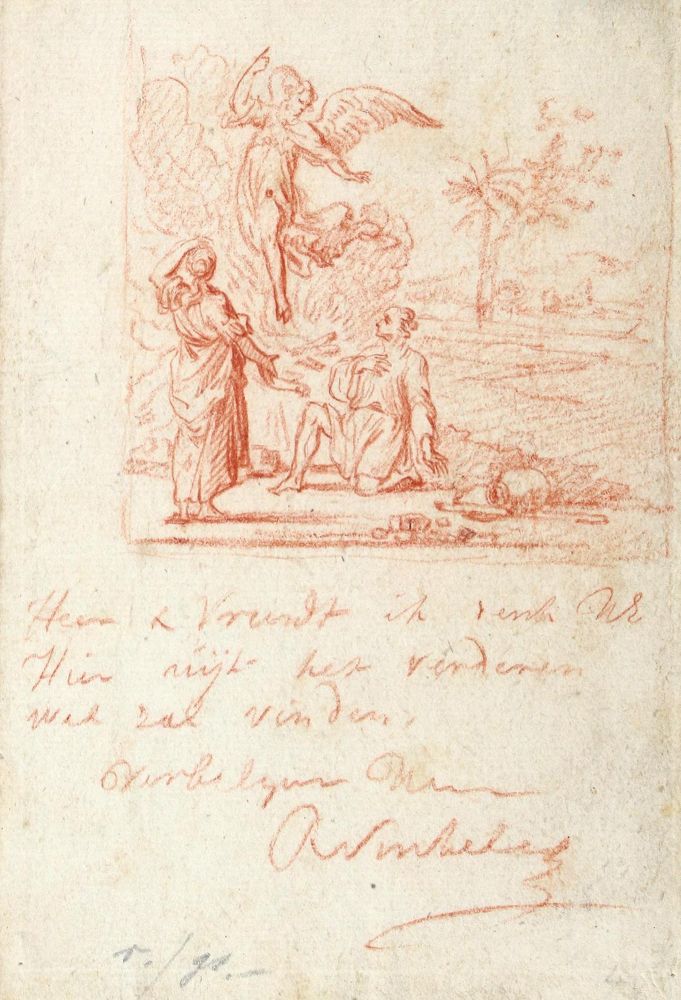 Heer & Vrundt ik denk UE
Hier uijt het verderen
wel zal vinden,
verblijve Uwe
RVinkeles
r./gl.